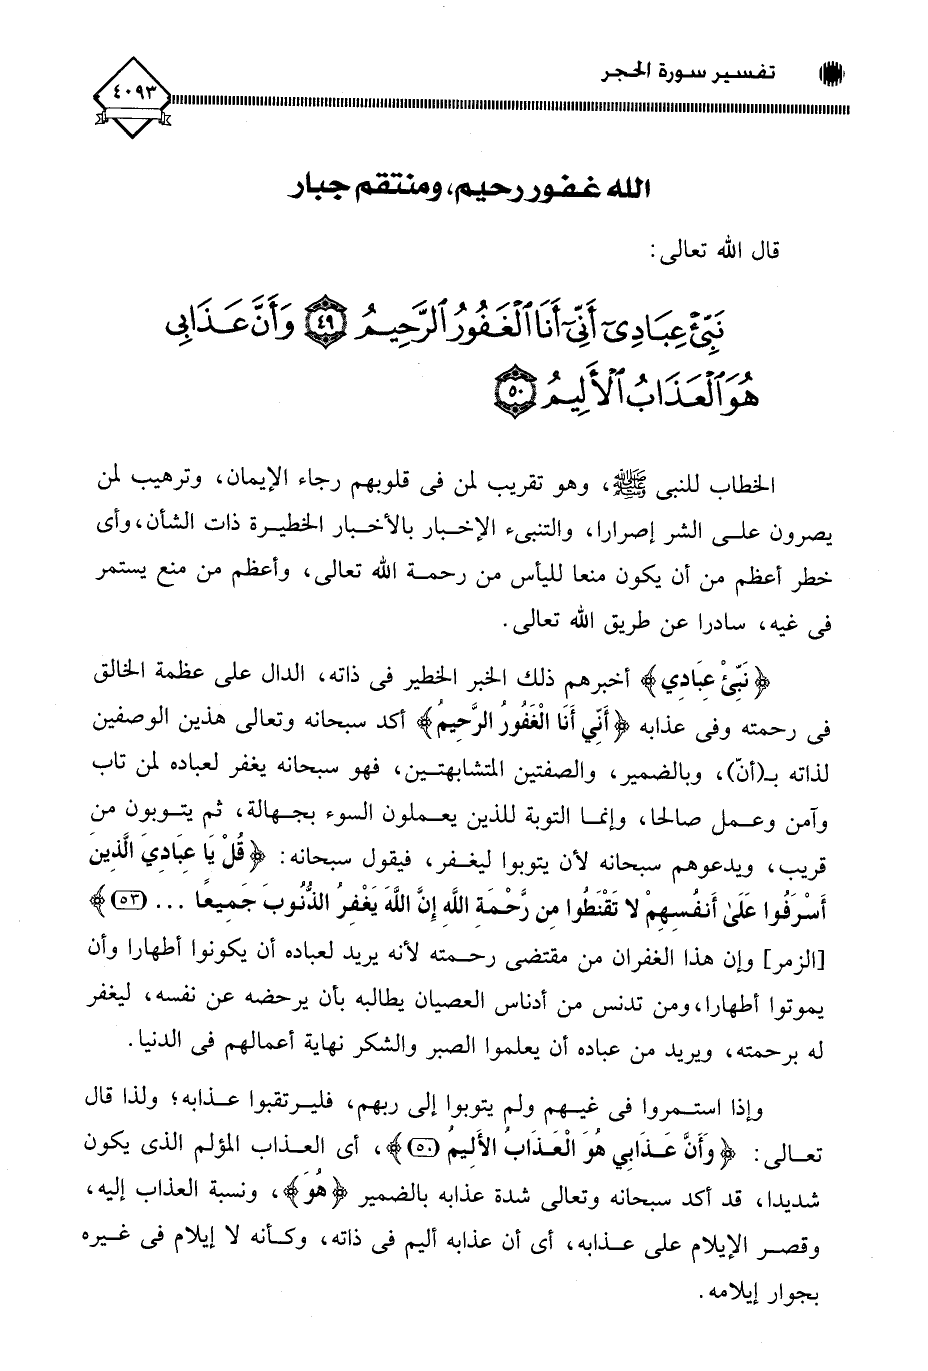 تفسير سورة الحجر
٤٠٩٣
الله غفور رحيم، ومنتقم جبار
قال الله تعالى:
نَبِّئْ عِبَادِىٓ أَنِّىٓ أَنَا ٱلْغَفُورُ ٱلرَّحِيمُ ٤٩ وَأَنَّ عَذَابِى
هُوَ ٱلْعَذَابُ ٱلْأَلِيمُ ٥٠
الخطاب للنبى ﷺ، وهو تقريب لمن فى قلوبهم رجاء الإيمان، وترهيب لمن
يصرون على الشر إصرارا، والتنبىء الإخبار بالأخبار الخطيرة ذات الشأن، وأى
خطر أعظم من أن يكون منعا لليأس من رحمة الله تعالى، وأعظم من منع يستمر
فى غيه، سادرا عن طريق الله تعالى.
﴿نَبِّئْ عِبَادِي﴾ أخبرهم ذلك الخبر الخطير فى ذاته، الدال على عظمة الخالق
فى رحمته وفى عذابه ﴿أَنِّي أَنَا الْغَفُورُ الرَّحِيمُ﴾ أكد سبحانه وتعالى هذين الوصفين
لذاته بـ(أنّ)، وبالضمير، والصفتين المتشابهتين، فهو سبحانه يغفر لعباده لمن تاب
وآمن وعمل صالحا، وإنما التوبة للذين يعملون السوء بجهالة، ثم يتوبون من
قريب، ويدعوهم سبحانه لأن يتوبوا ليغفر، فيقول سبحانه: ﴿قُلْ يَا عِبَادِيَ الَّذِينَ
أَسْرَفُوا عَلَىٰ أَنفُسِهِمْ لا تَقْنَطُوا مِن رَّحْمَةِ اللَّهِ إِنَّ اللَّهَ يَغْفِرُ الذُّنُوبَ جَمِيعًا ... (٥٣)﴾
[الزمر] وإن هذا الغفران من مقتضى رحمته لأنه يريد لعباده أن يكونوا أطهارا وأن
يموتوا أطهارا، ومن تدنس من أدناس العصيان يطالبه بأن يرحضه عن نفسه، ليغفر
له برحمته، ويريد من عباده أن يعلموا الصبر والشكر نهاية أعمالهم فى الدنيا.
وإذا استمروا فى غيهم ولم يتوبوا إلى ربهم، فليرتقبوا عذابه؛ ولذا قال
تعالى: ﴿وَأَنَّ عَذَابِي هُوَ الْعَذَابُ الأَلِيمُ (٥٠)﴾، أى العذاب المؤلم الذى يكون
شديدا، قد أكد سبحانه وتعالى شدة عذابه بالضمير ﴿هُوَ﴾، ونسبة العذاب إليه،
وقصر الإيلام على عذابه، أى أن عذابه أليم فى ذاته، وكأنه لا إيلام فى غيره
بجوار إيلامه.